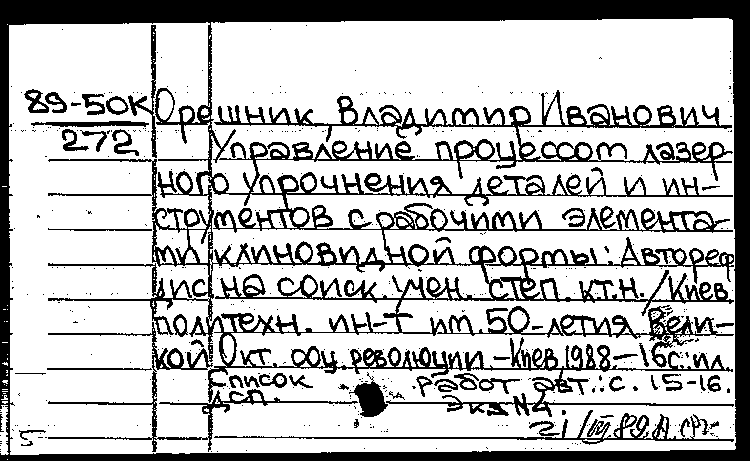 89-50К Орешник, Владимир Иванович
272
Управление процессом лазер-
ного упрочнения деталей и ин-
струментов с рабочими элемента-
ми клиновидной формы: Автореф
дис. на соиск. учен. степ. к.т.н. / Киев.
политехн. ин-т им. 50-летия Вели-
кой Окт. соц. революции. - Киев, 1988. - 16с.: ил.
Список работ авт.: с. 15-16.
дсп. Экз N4.
21/III 89.
5